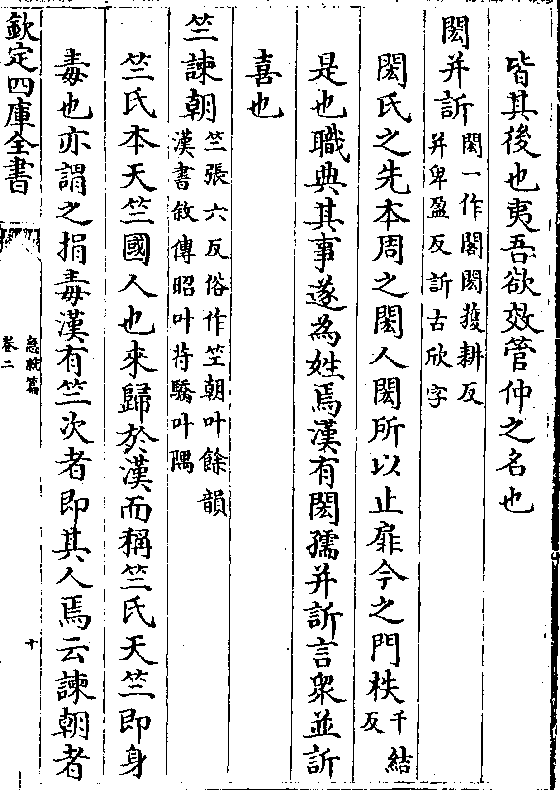 皆其後也夷吾欲效管仲之名也
閎并訢閎一作閣閎獲耕反
并卑盈反訢古欣字
閎氏之先本周之閎人閎所以止扉今之門柣千結
反
是也職典其事遂為姓焉漢有閎孺并訢言衆並訢
喜也
竺諫朝竺張六反俗作笁朝叶餘韻
漢書敘傳昭叶持驕叶隅
竺氏本天竺國人也來歸於漢而稱竺氏天竺即身
毒也亦謂之捐毒漢有竺次者即其人焉云諫朝者
欽定四庫全書
急就篇
卷二
十